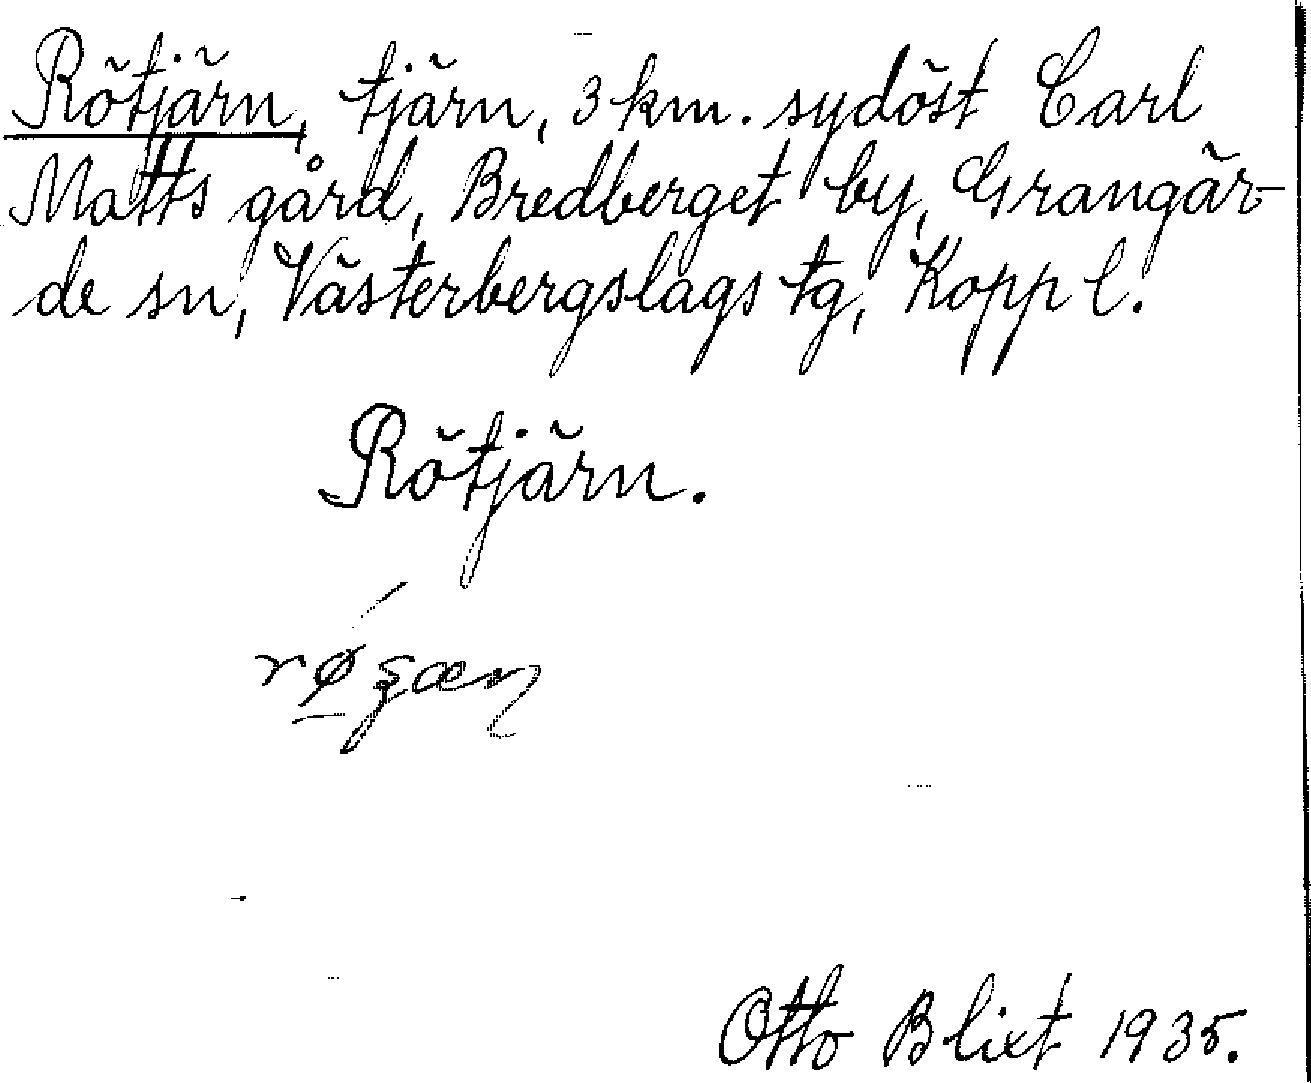 Rötjärn, tjärn, 3 km. sydöst Carl
Matts gård, Bredberget by, Grangär-
de sn, Västerbergslags tg, Kopp l.
Rötjärn.
Otto Blixt 1935.